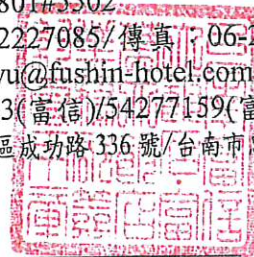 801#3302
2227085/傳真：06-2
yu@fushin-hotel.com
3(富信)/54277159(富
區成功路 336 號/台南市